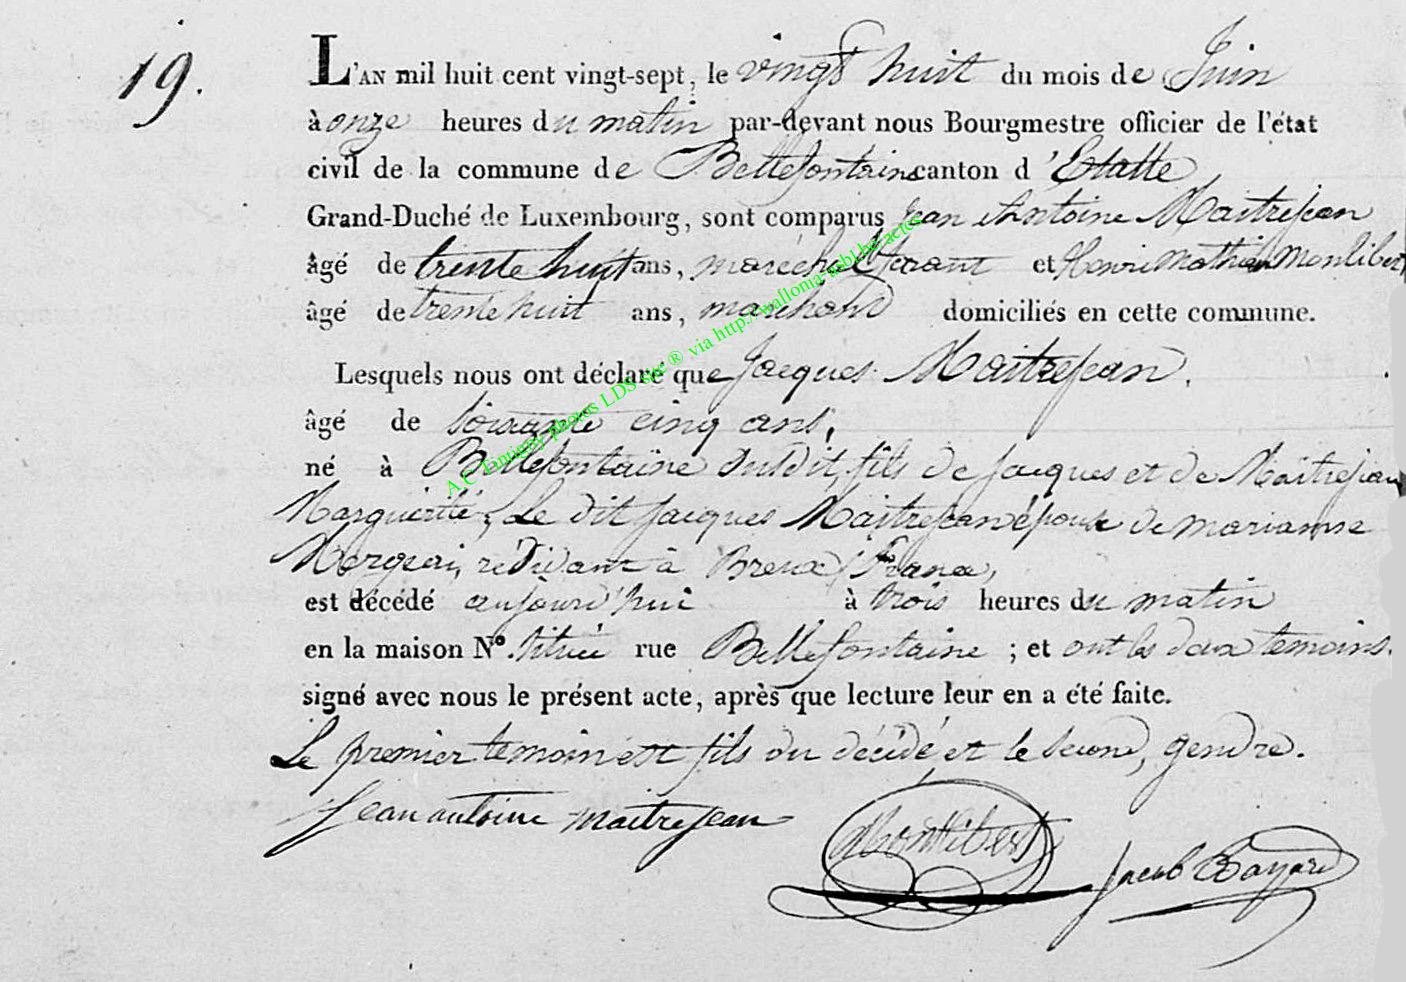 19.
L'AN mil huit cent vingt-sept, le vingt huit du mois de Juin
à onze heures du matin par-devant nous Bourgmestre officier de l'état
civil de la commune de Bellefontaine canton d'Etalle
Grand-Duché de Luxembourg, sont comparus Jean Antoine Maitrejean
âgé de trente huit ans, maréchal ferant et Henri Mathieu Monlibert
âgé de trente huit ans, marchand domiciliés en cette commune.
Lesquels nous ont déclaré que Jacques Maitrejean.
âgé de soixante cinq ans,
né à Bellefontaine susdit, fils de Jacques et de Maitrejean
Margueritte, Le dit Jacques Maitrejean époux de marianne
residant à Breux, France,
est décédé aujourd'hui à trois heures du matin
en la maison N°. située rue Bellefontaine ; et ont les deux temoins.
signé avec nous le présent acte, après que lecture leur en a été faite.
Le premier temoin est fils du décédé et le second, gendre.
Jean antoine maitrejean
Monlibert
Jacob Bayard
A.C. Tintigny photos LDS due ® via http://wallonia-asbl.be actes